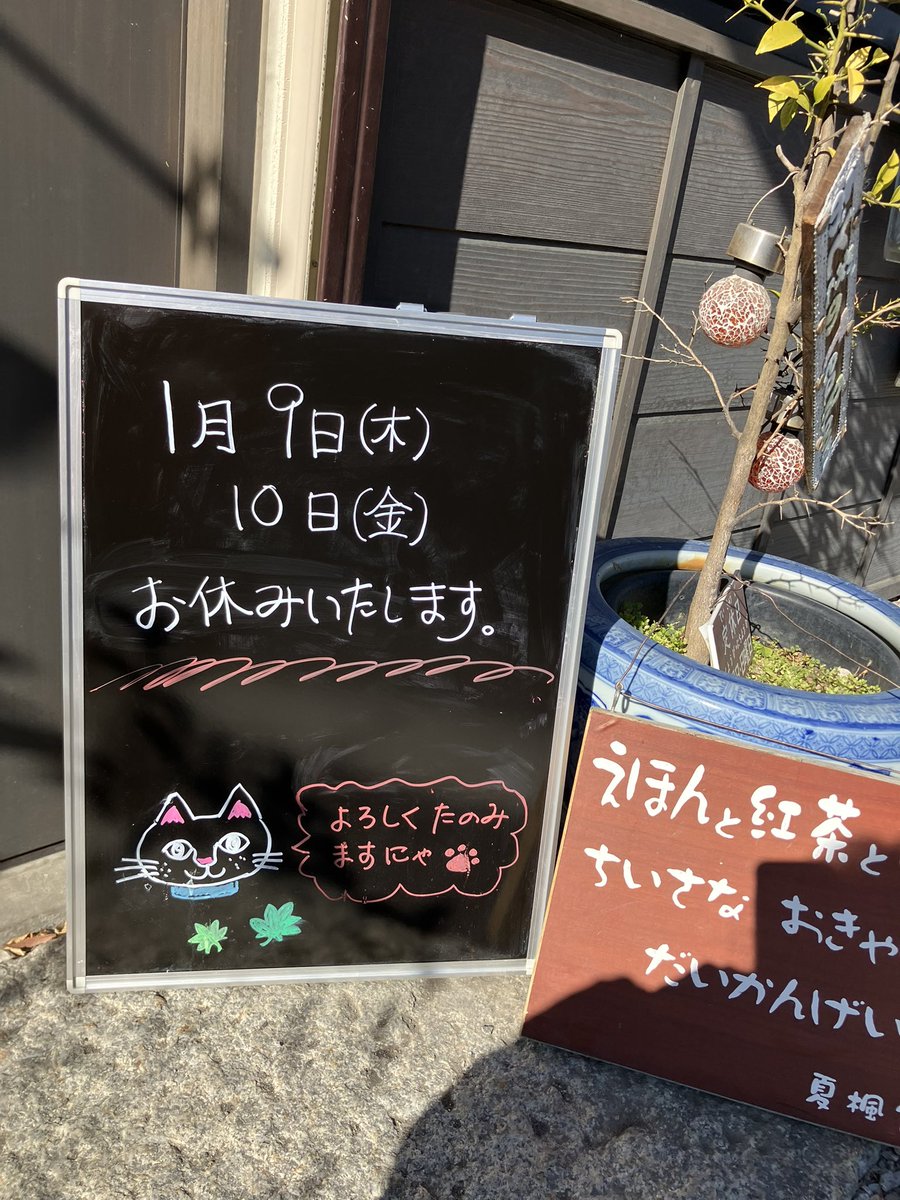 1月9日(木)
10日(金)
お休みいたします。
よろしくたのみ
ますにゃ
えほんと紅茶と
ちいさなおきゃ
だいかんげい
夏楓